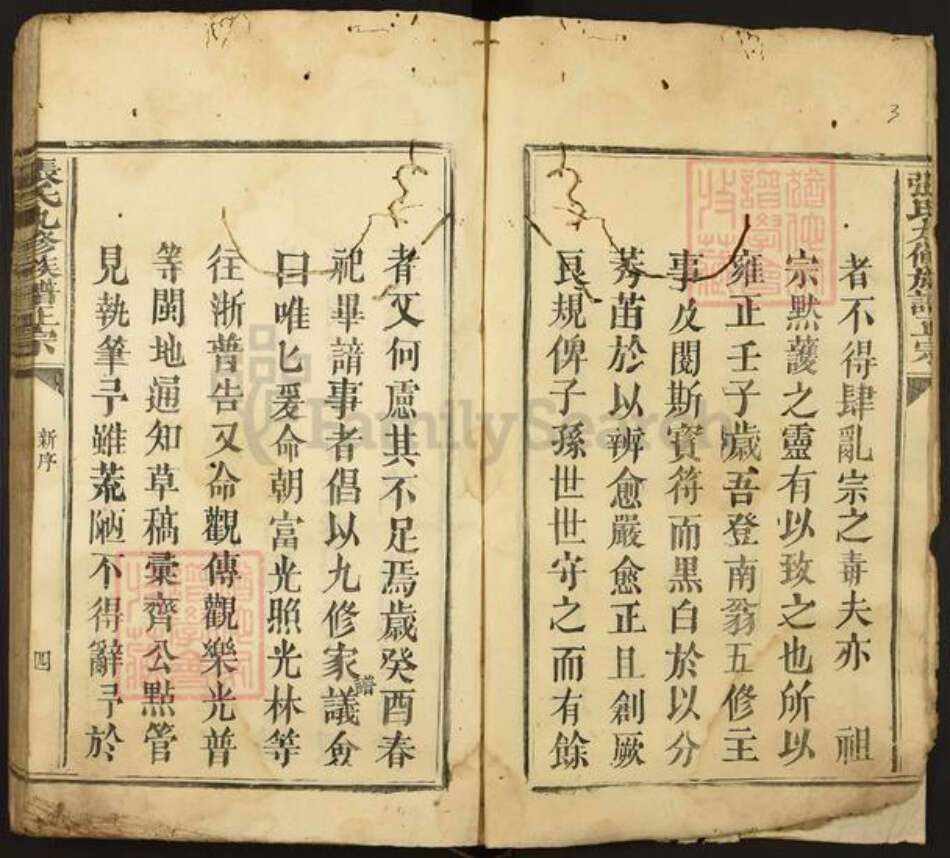 3
張氏九修族譜正宗
者不得肆亂宗之毒夫亦 祖
宗默護之靈有以致之也所以
雍正壬子歲吾登南翁五修主
事及閱斯寳符而黑白於以分
莠苗於以辨愈嚴愈正且創厥
良規俾子孫世世守之而有餘
者又何慮其不足焉歲癸酉春
祀畢諳事者倡以九修家譜議僉
曰唯匕爰命朝富光照光林等
往渐普告又命觀傳觀樂光普
等閩地通知草稿彙齊公點管
見執筆予雖荒陋不得辭予於
張氏九修族譜正宗
新序
四
FamilySearch